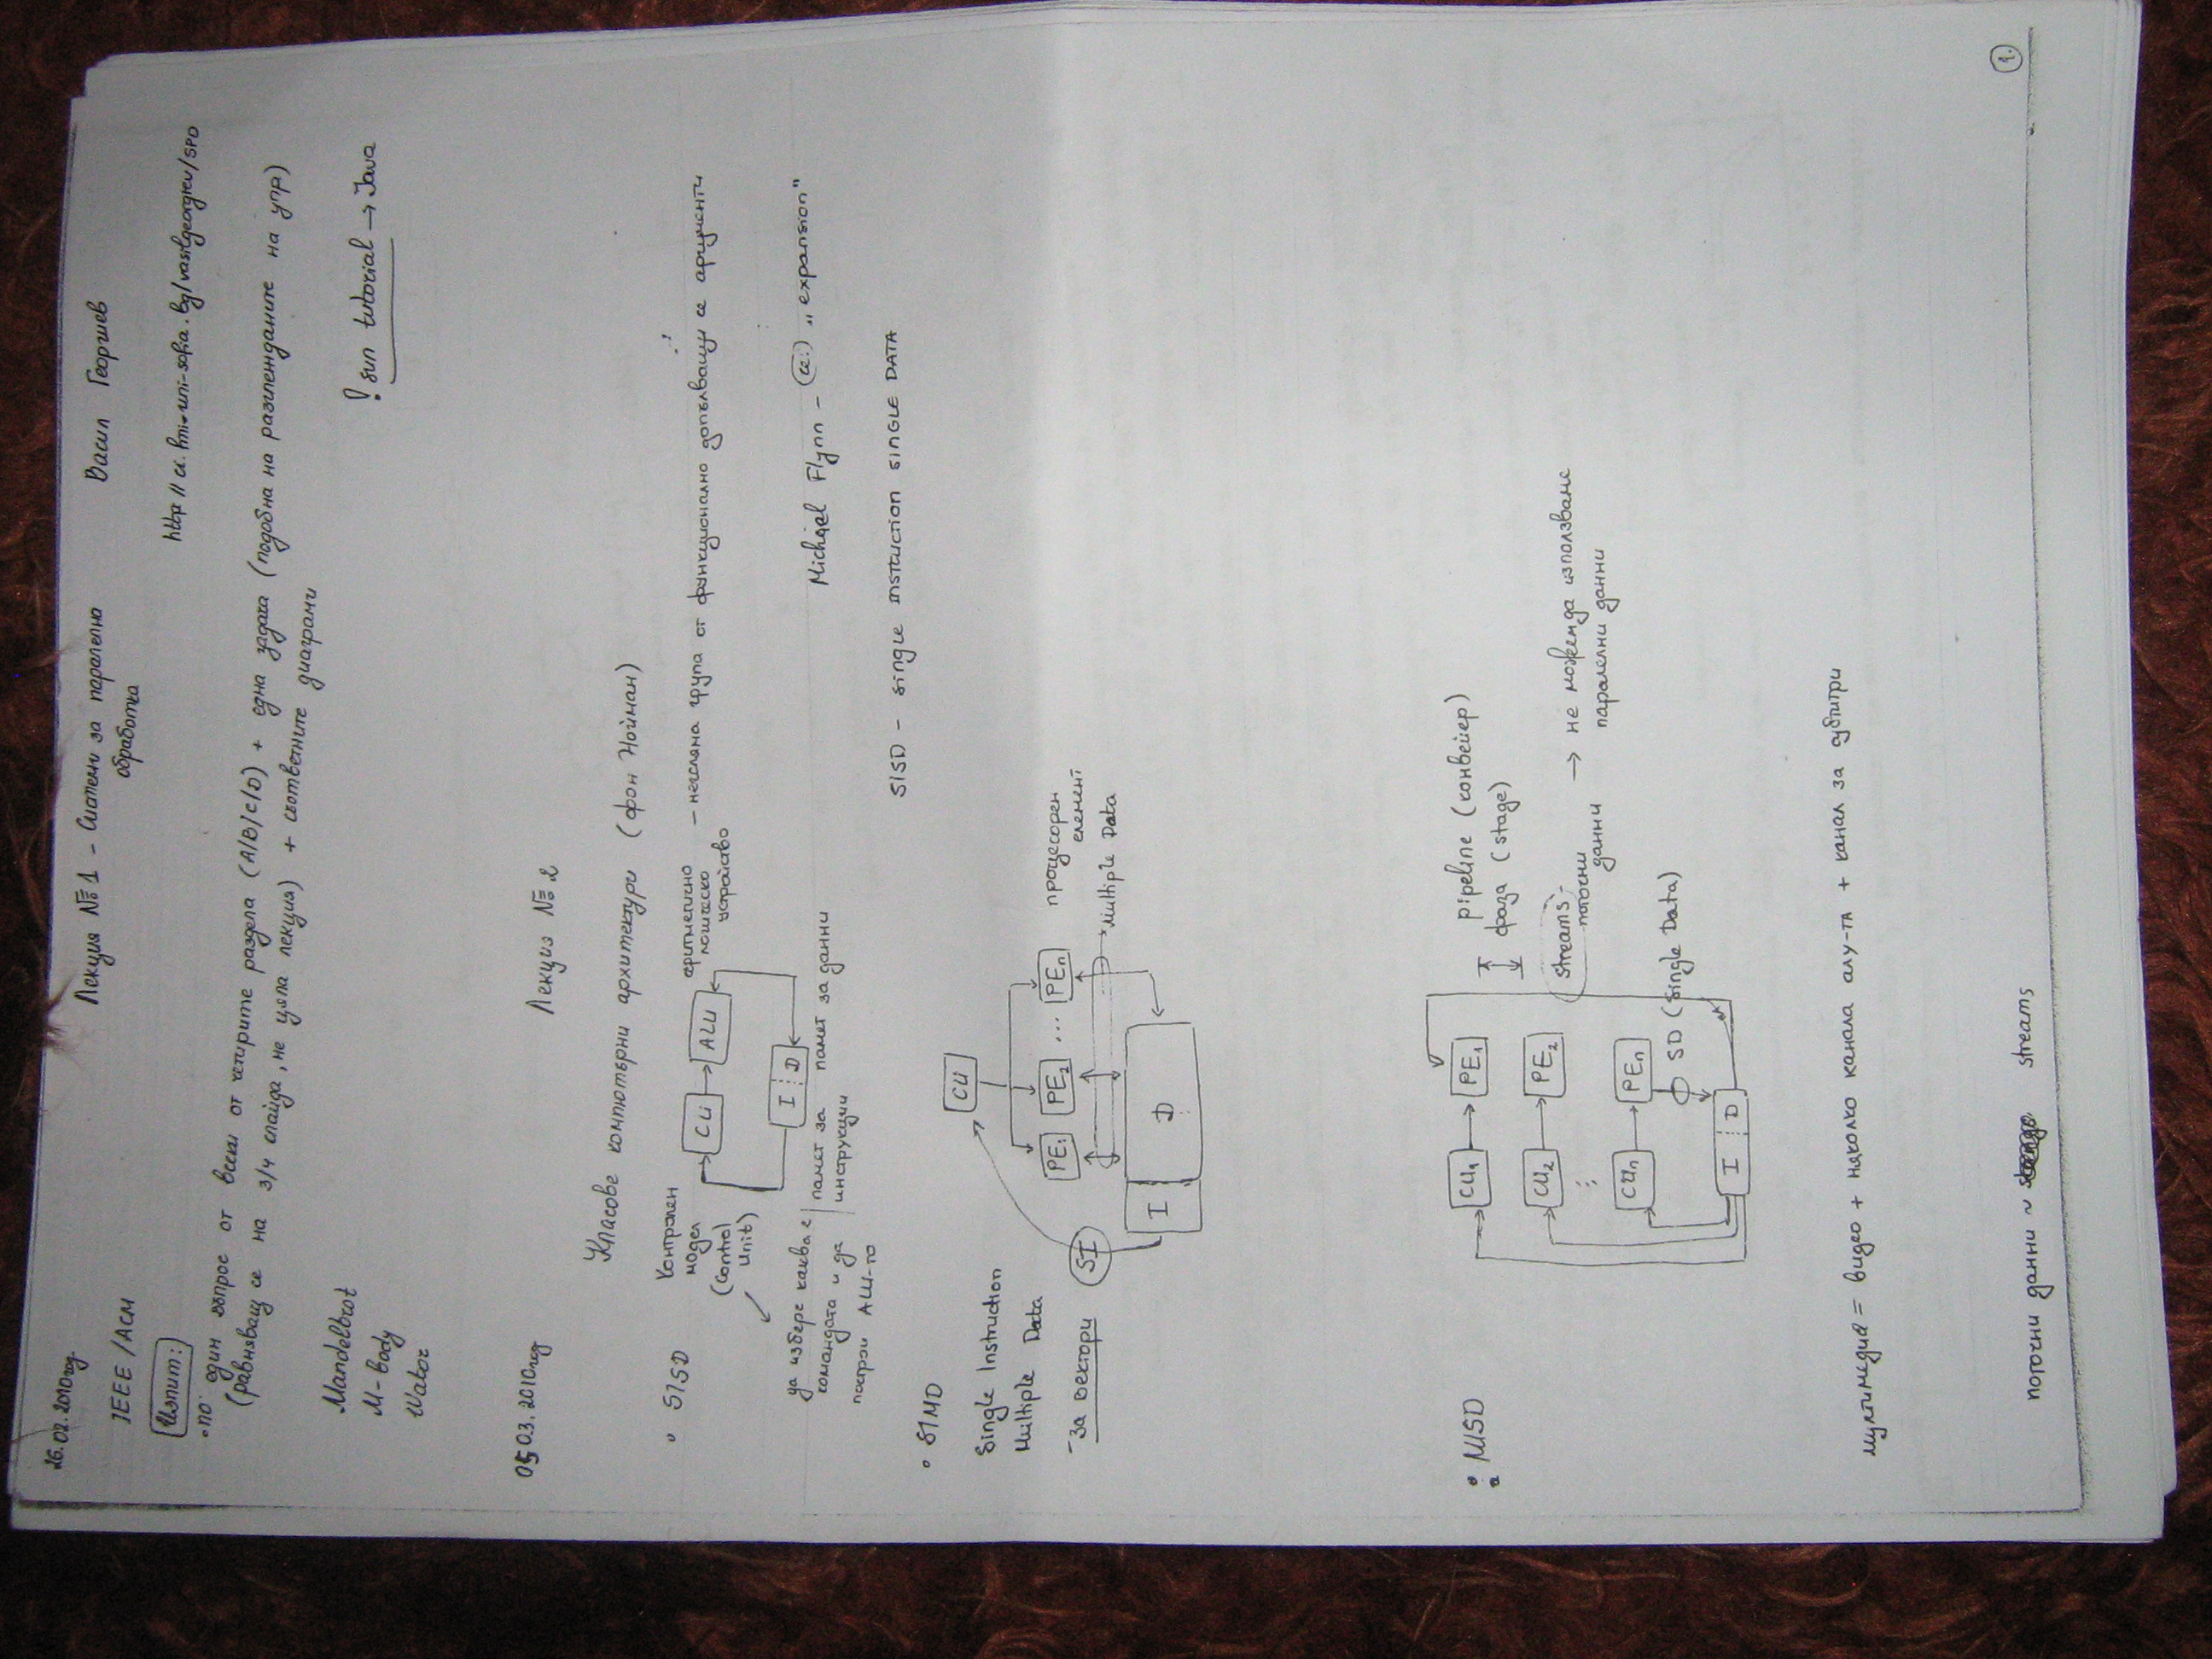 26.02.2010год.
Лекция №1 - Системи за паралелна обработка
Васил Георгиев
IEEE/ACM
Изпит:
• по един въпрос от всеки от четирите раздела (A/B/C/D) + една задача (подобна на разглежданите на упр)
(равняващ се на 3/4 слайда, не цяла лекция) + съответните диаграми
Mandelbrot
M-body
Wator
! sun tutorial → Java
05.03.2010год
Лекция №2
Класове компютърни архитектури (фон Нойман)
• SISD
Контролен модел (Control Unit)
CU → ALU
аритметично логическо устройство
- неголяма група от функционално допълващи се аргументи
I D
да избере каква е командата и да настрои ALU-то
памет за инструкции
памет за данни
Michael Flynn - „expansion"
SISD - single instruction single DATA
• SIMD
Single Instruction
Multiple Data
- за вектори
SI
CU
PE1 PE2 ... PEn
процесорен елемент
Multiple Data
I D
• MISD
CU1 → PE1
CU2 → PE2
CUn → PEn
I D
SD (Single Data)
pipeline (конвейер)
фаза (stage)
streams - поточни данни → не може да използване паралелни данни
мултимедия = видео + няколко канала алу-та + канал за субтитри
поточни данни ~ streams
1.